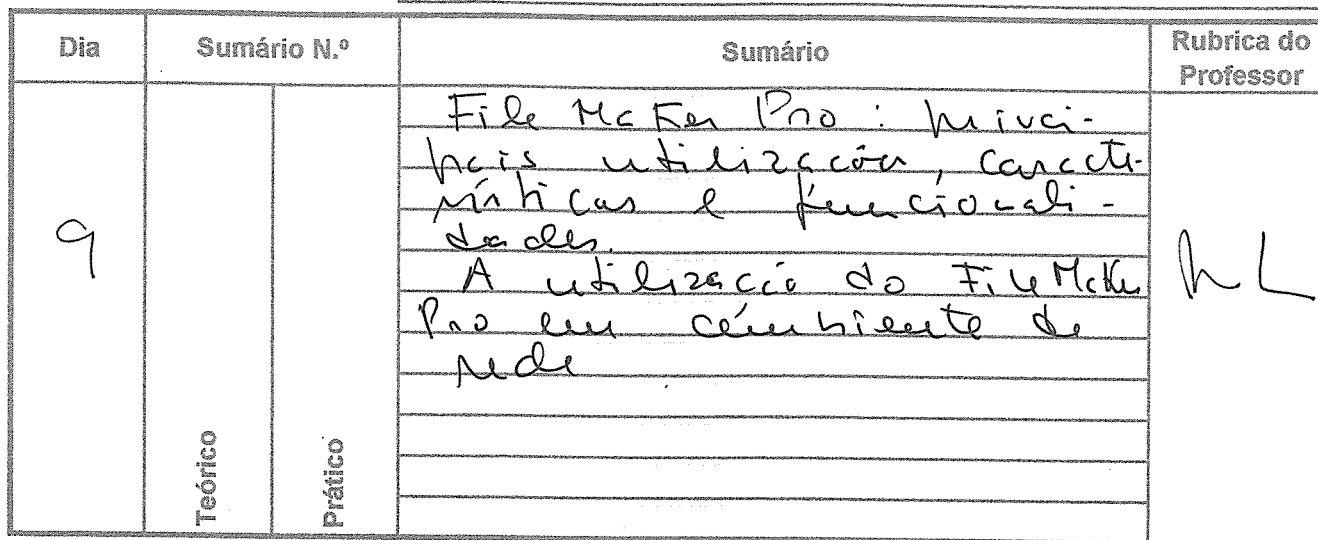 Dia Sumário N.º Sumário Rubrica do Professor
9
Teórico
Prático
File Maker Pro : princi-
pais utilização, caracte-
rísticas e funcionali-
dades.
A utilização do File Maker
Pro em ambiente de
rede